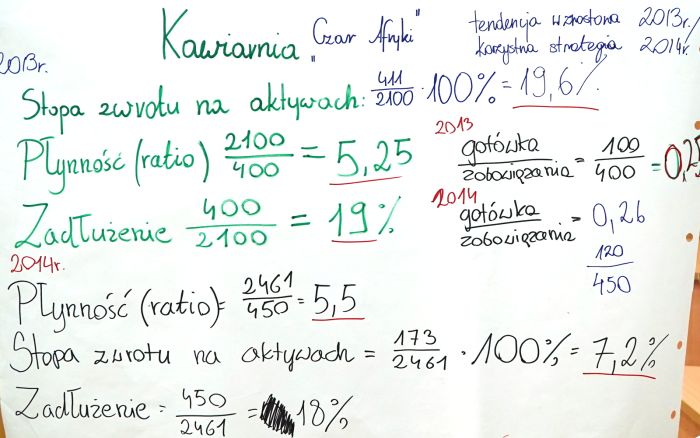 Kawiarnia „Czar Afryki"
tendencja wzrostowa 2013r./
korzystna strategia 2014r.
2013r.
Stopa zwrotu na aktywach: 411/2100 · 100% = 19,6%
Płynność (ratio) 2100/400 = 5,25
Zadłużenie 400/2100 = 19%
2013
gotówka/zobowiązania = 100/400 = 0,25
2014
gotówka/zobowiązania = 0,26
120/450
2014r.
Płynność (ratio) = 2461/450 = 5,5
Stopa zwrotu na aktywach = 173/2461 · 100% = 7,2%
Zadłużenie = 450/2461 = 18%